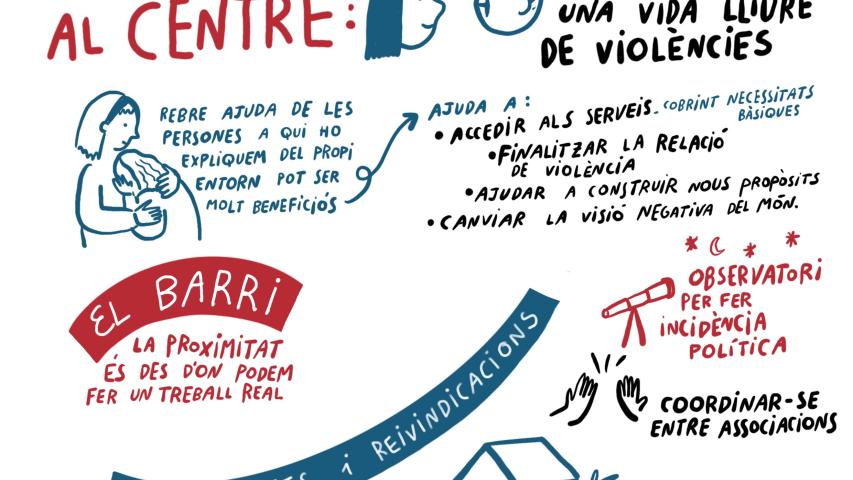 AL CENTRE:
UNA VIDA LLIURE
DE VIOLÈNCIES
REBRE AJUDA DE LES
PERSONES A QUI HO
EXPLIQUEM DEL PROPI
ENTORN POT SER
MOLT BENEFICIÓS
AJUDA A:
• ACCEDIR ALS SERVEIS - COBRINT NECESSITATS
BÀSIQUES
• FINALITZAR LA RELACIÓ
DE VIOLÈNCIA
• AJUDAR A CONSTRUIR NOUS PROPÒSITS
• CANVIAR LA VISIÓ NEGATIVA DEL MÓN.
EL BARRI
LA PROXIMITAT
ÉS DES D'ON PODEM
FER UN TREBALL REAL
OBSERVATORI
PER FER
INCIDÈNCIA
POLÍTICA
COORDINAR-SE
ENTRE ASSOCIACIONS
i REIVINDICACIONS